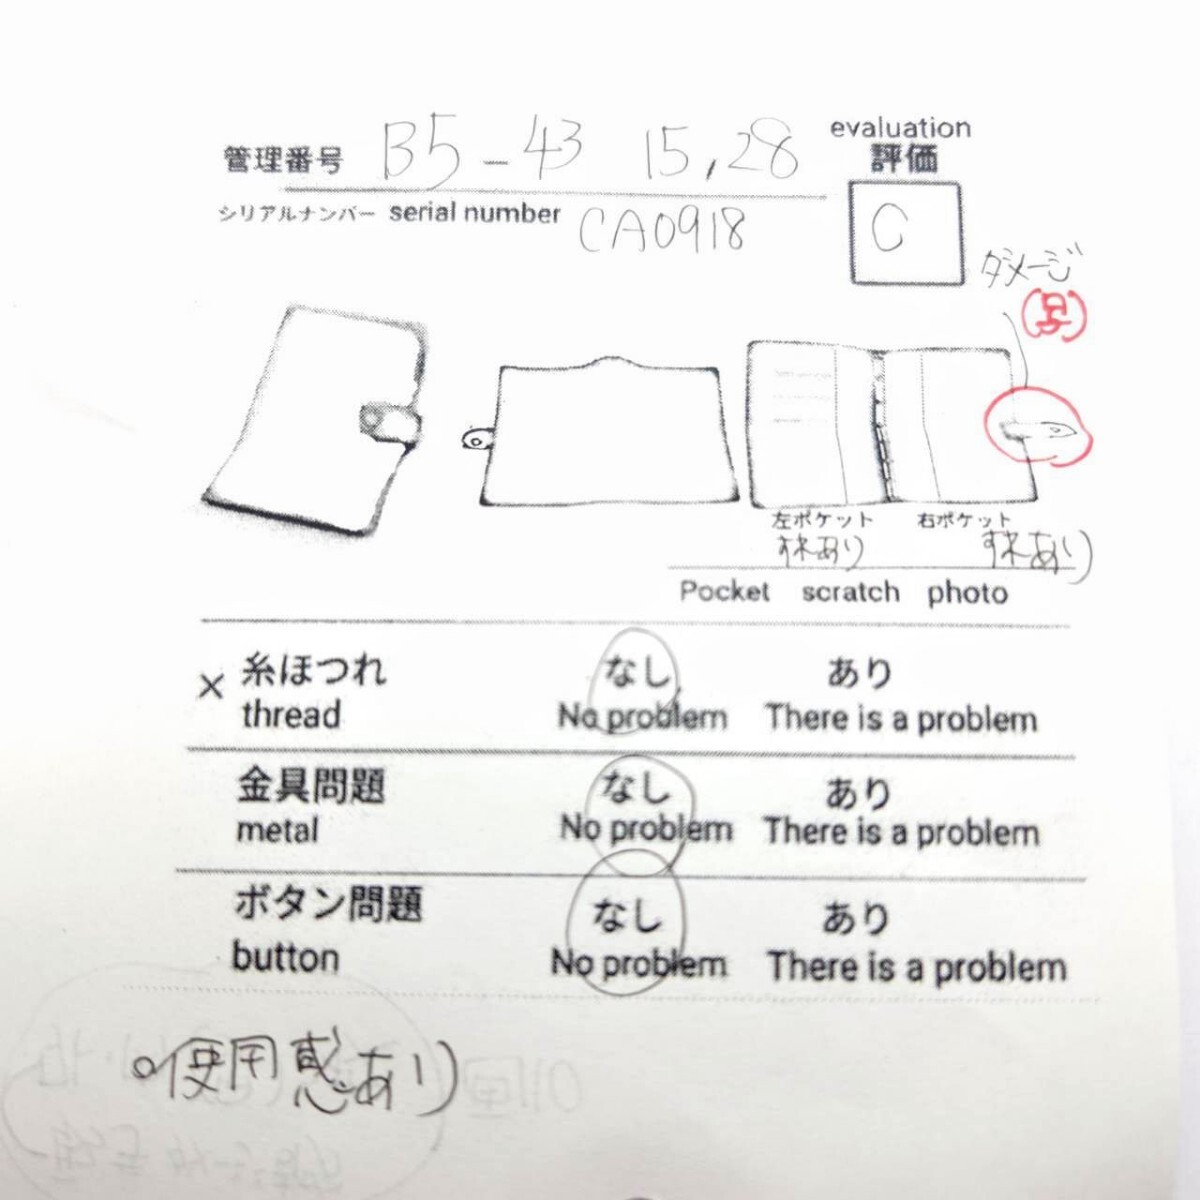 evaluation
管理番号 B5-43 15,28 評価
シリアルナンバー serial number CA0918
C
ダメージ
左ポケット 右ポケット
あり あり
Pocket scratch photo
× 糸ほつれ なし あり
thread No problem There is a problem
金具問題 なし あり
metal No problem There is a problem
ボタン問題 なし あり
button No problem There is a problem
○使用感あり